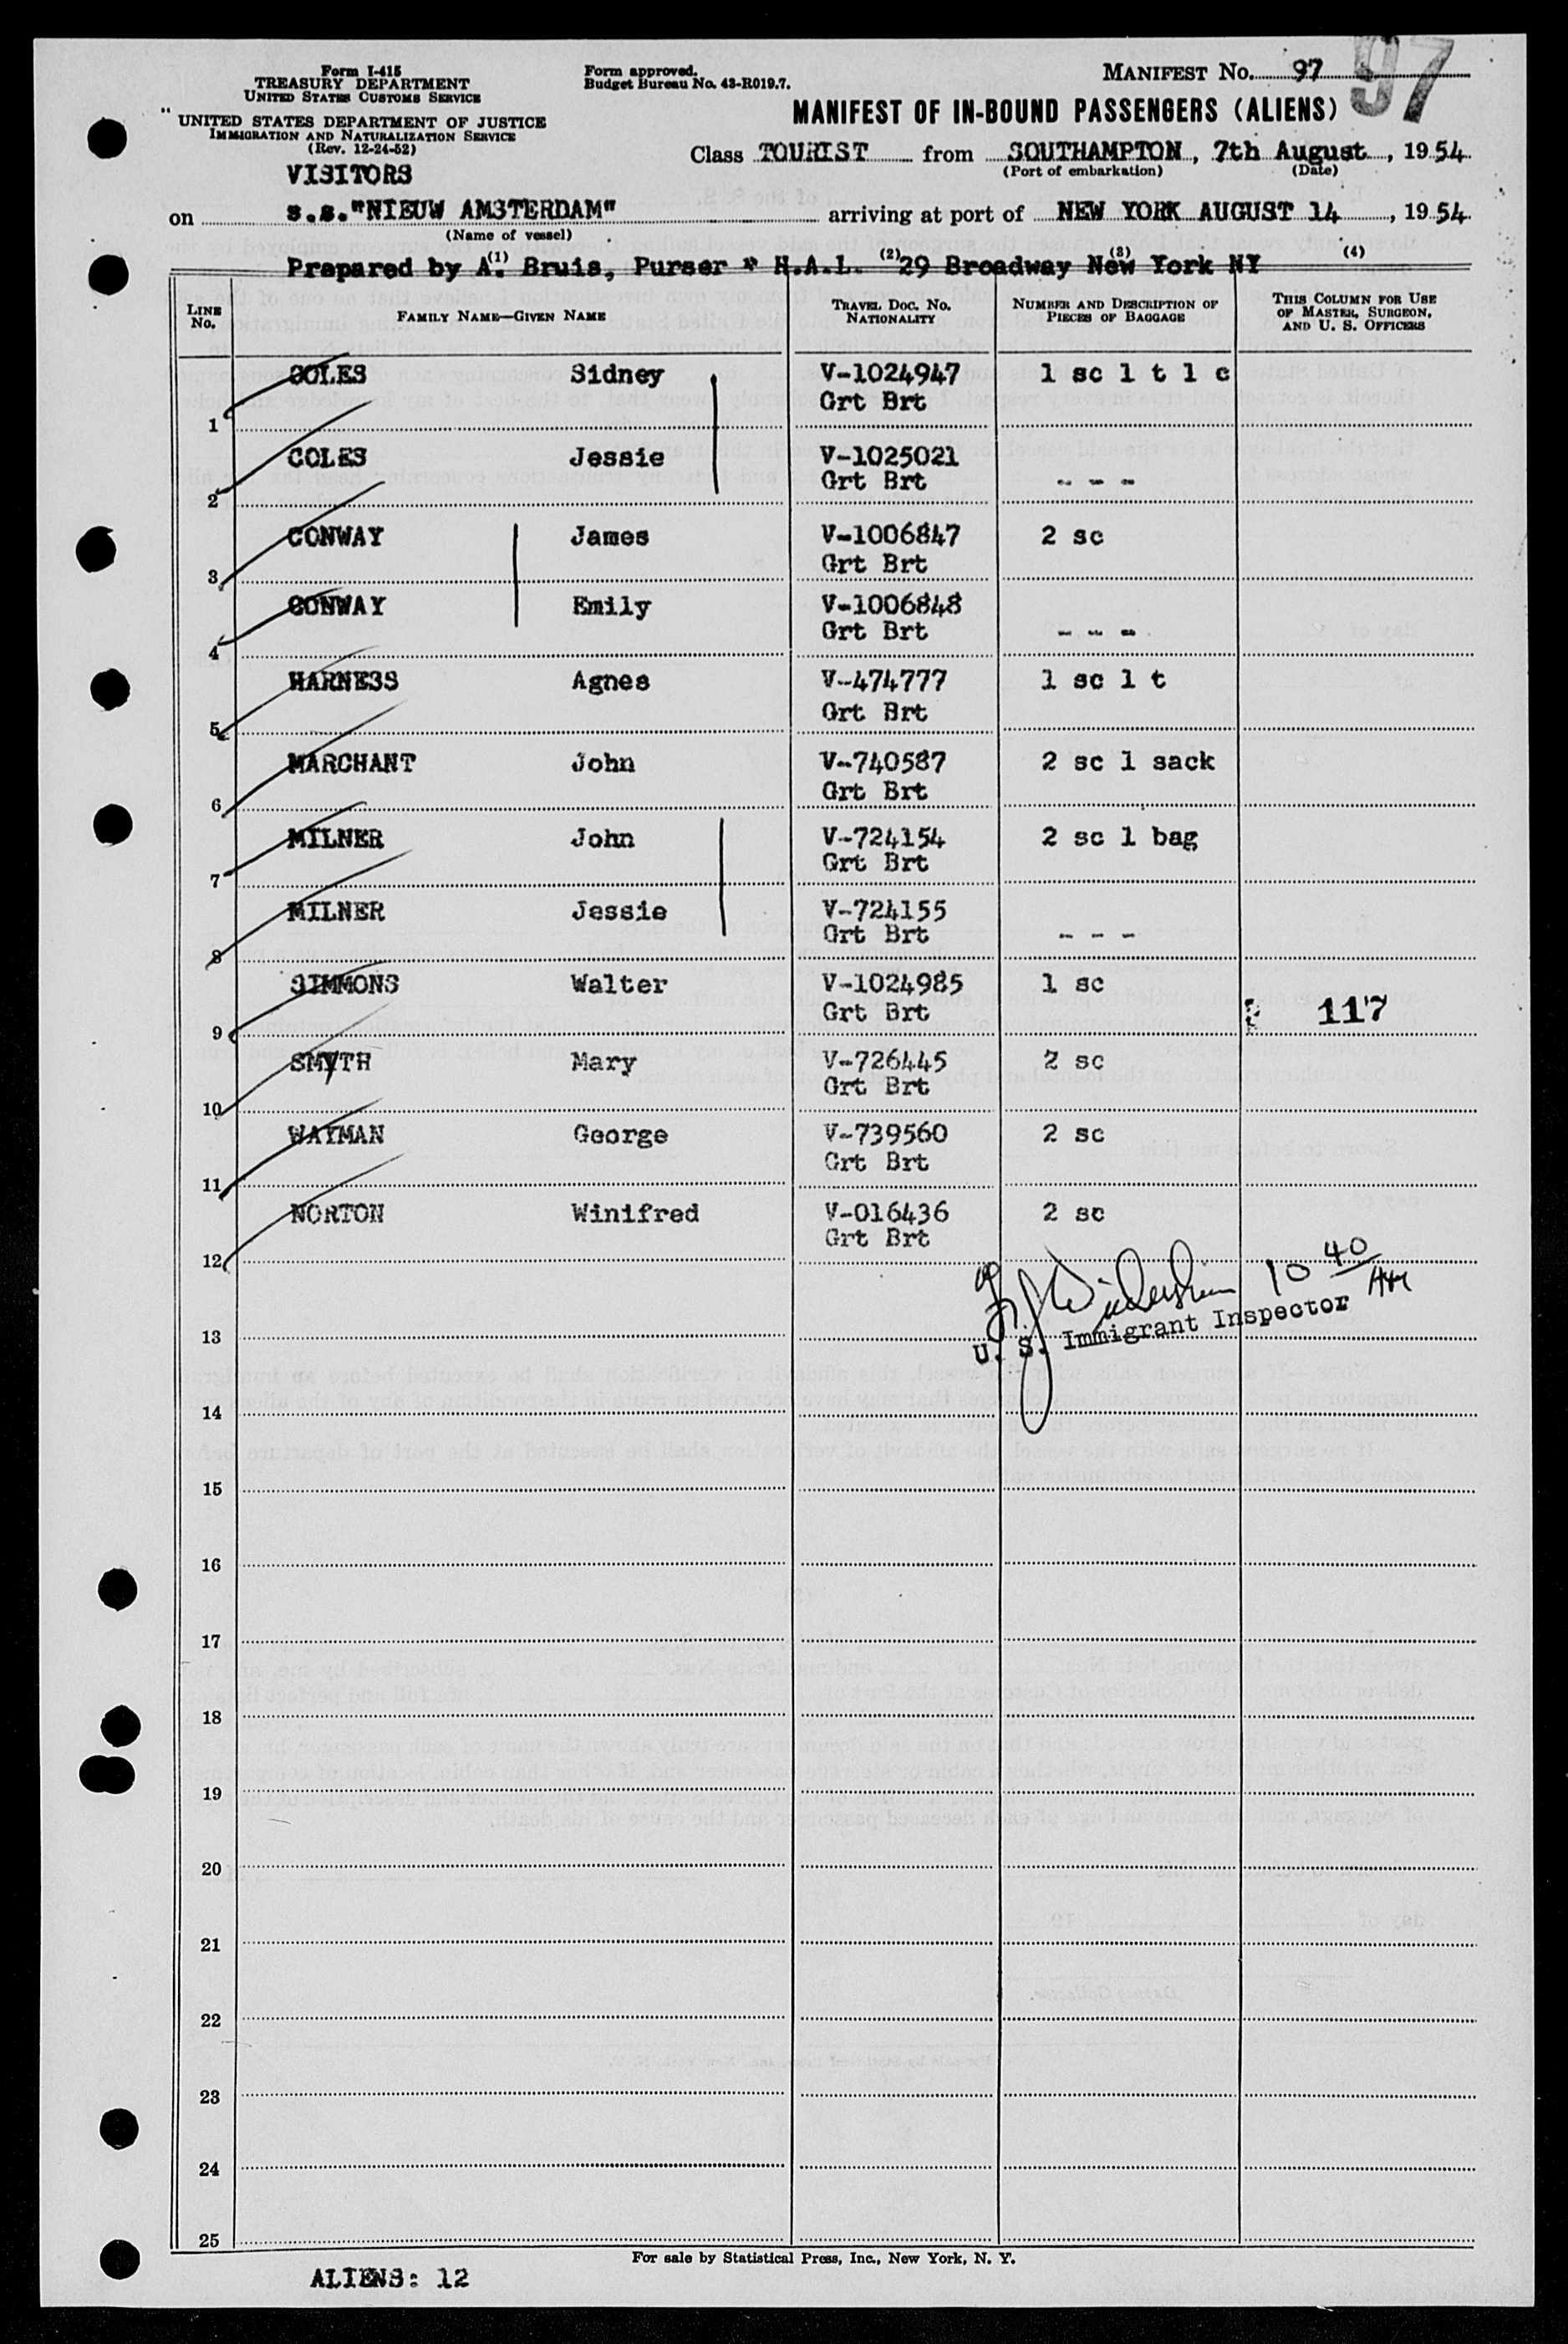 Form I-415
TREASURY DEPARTMENT
UNITED STATES CUSTOMS SERVICE
UNITED STATES DEPARTMENT OF JUSTICE
IMMIGRATION AND NATURALIZATION SERVICE
(Rev. 12-24-52)
Form approved.
Budget Bureau No. 43-R019.7.
MANIFEST NO. 97
97
MANIFEST OF IN-BOUND PASSENGERS (ALIENS)
Class TOURIST from SOUTHAMPTON, 7th August, 1954
(Port of embarkation) (Date)
VISITORS
on s.s."NIEUW AMSTERDAM" arriving at port of NEW YORK AUGUST 14, 1954
(Name of vessel)
Prepared by A. Bruis, Purser * H.A.L. 29 Broadway New York NY
(1) (2) (3) (4)
LINE No. FAMILY NAME—GIVEN NAME TRAVEL DOC. NO. NATIONALITY NUMBER AND DESCRIPTION OF PIECES OF BAGGAGE THIS COLUMN FOR USE OF MASTER, SURGEON, AND U. S. OFFICERS
1 COLES Sidney V-1024947 1 sc 1 t 1 c
Grt Brt
2 COLES Jessie V-1025021
Grt Brt - - -
3 CONWAY James V-1006847 2 sc
Grt Brt
4 CONWAY Emily V-1006848
Grt Brt - - -
5 HARNESS Agnes V-474777 1 sc 1 t
Grt Brt
6 MARCHANT John V-740587 2 sc 1 sack
Grt Brt
7 MILNER John V-724154 2 sc 1 bag
Grt Brt
8 MILNER Jessie V-724155
Grt Brt - - -
9 SIMMONS Walter V-1024985 1 sc
Grt Brt 117
10 SMYTH Mary V-726445 2 sc
Grt Brt
11 WAYMAN George V-739560 2 sc
Grt Brt
12 NORTON Winifred V-016436 2 sc
Grt Brt
10 40 AM
U. S. Immigrant Inspector
13
14
15
16
17
18
19
20
21
22
23
24
25
For sale by Statistical Press, Inc., New York, N. Y.
ALIENS: 12